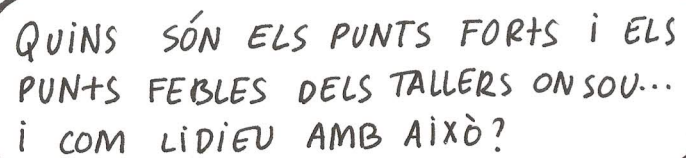 QUiNS SÓN ELS PUNTS FORtS i ELS
PUNtS FEBLES DELS TALLERS ON SOU...
i COM LiDiEU AMB AiXÒ?